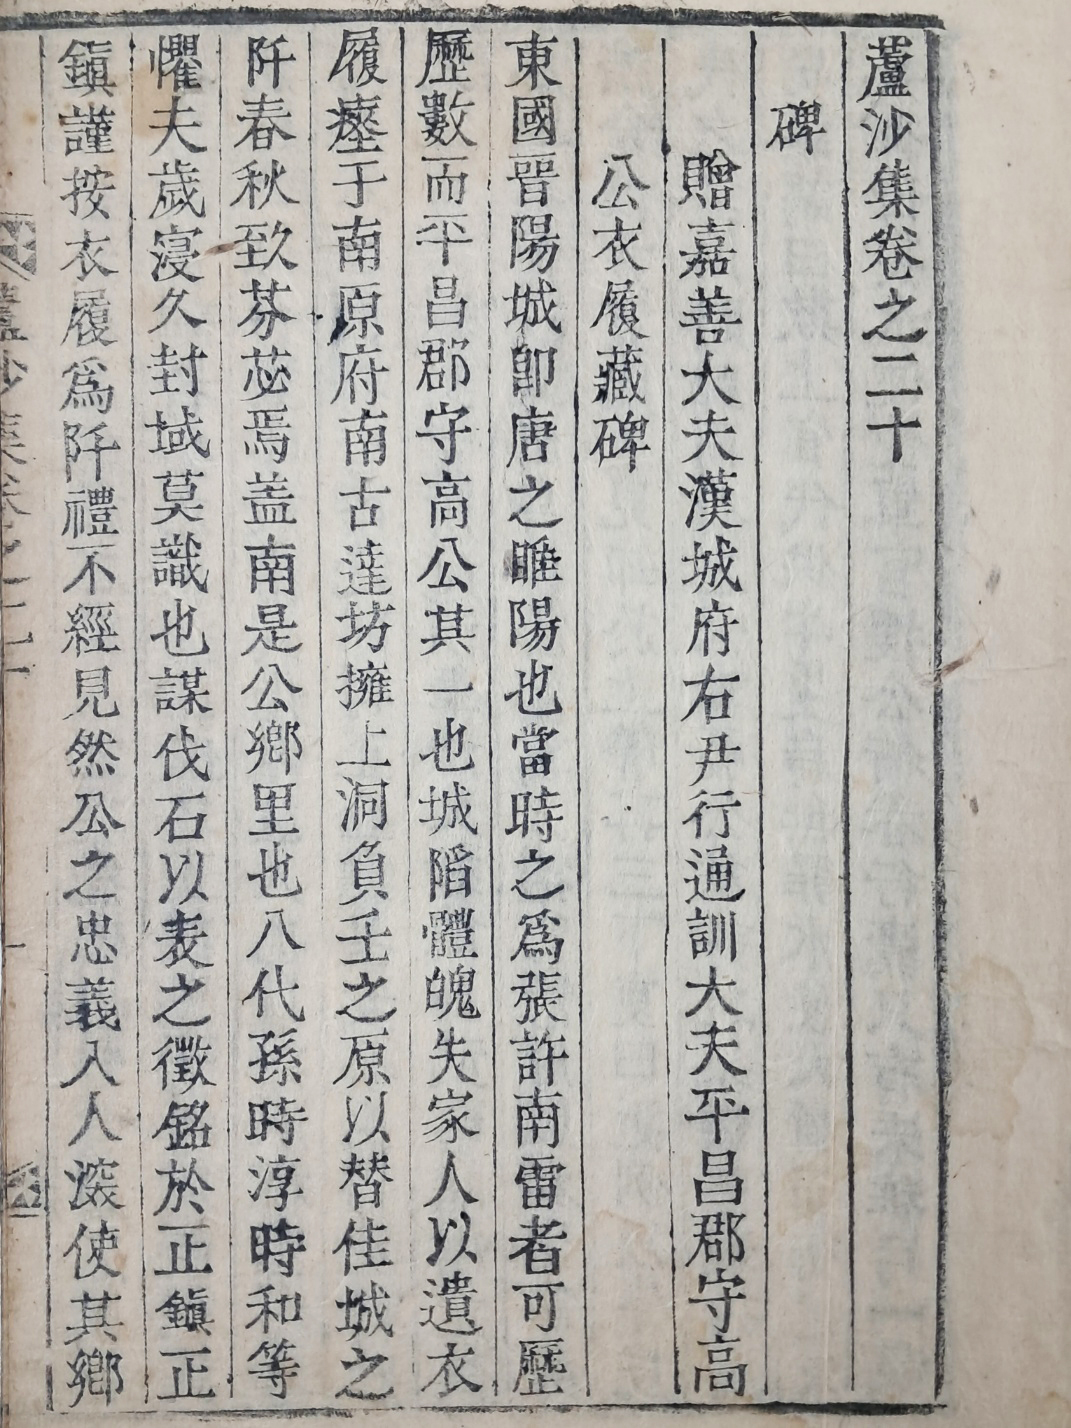 蘆沙集卷之二十
碑
贈嘉善大夫漢城府右尹行通訓大夫平昌郡守高
公衣履藏碑
東國晉陽城卽唐之睢陽也當時之爲張許南雷者可歷
歷數而平昌郡守高公其一也城陷體魄失家人以遺衣
履瘞于南原府南古達坊擁上洞負壬之原以替佳城之
阡春秋致芬苾焉盖南是公鄉里也八代孫時淳時和等
懼夫歲寖久封域莫識也謀伐石以表之徵銘於正鎭正
鎭謹按衣履爲阡禮不經見然公之忠義入人深使其鄉